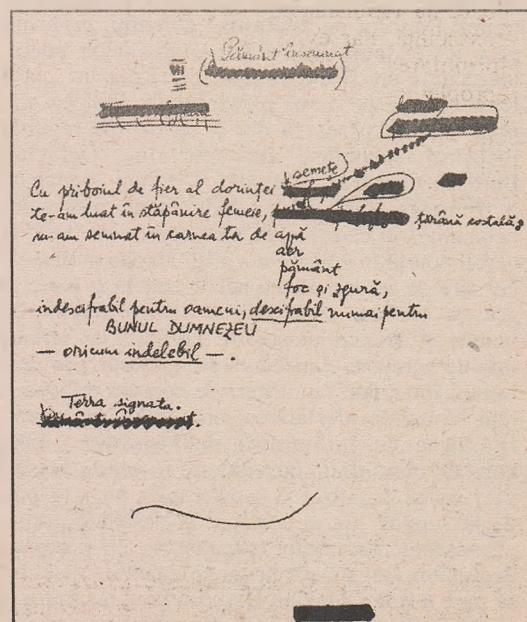 Pământ însemnat
VII
(semețe)
Cu priboiul de fier al dorinței
te-am luat în stăpânire femeie, țărână costală,
m-am semnat în carnea ta de apă
aer
pământ
foc și zgură,
indescifrabil pentru oameni, descifrabil numai pentru
BUNUL DUMNEZEU
— oricum indelebil —.
Terra signata.